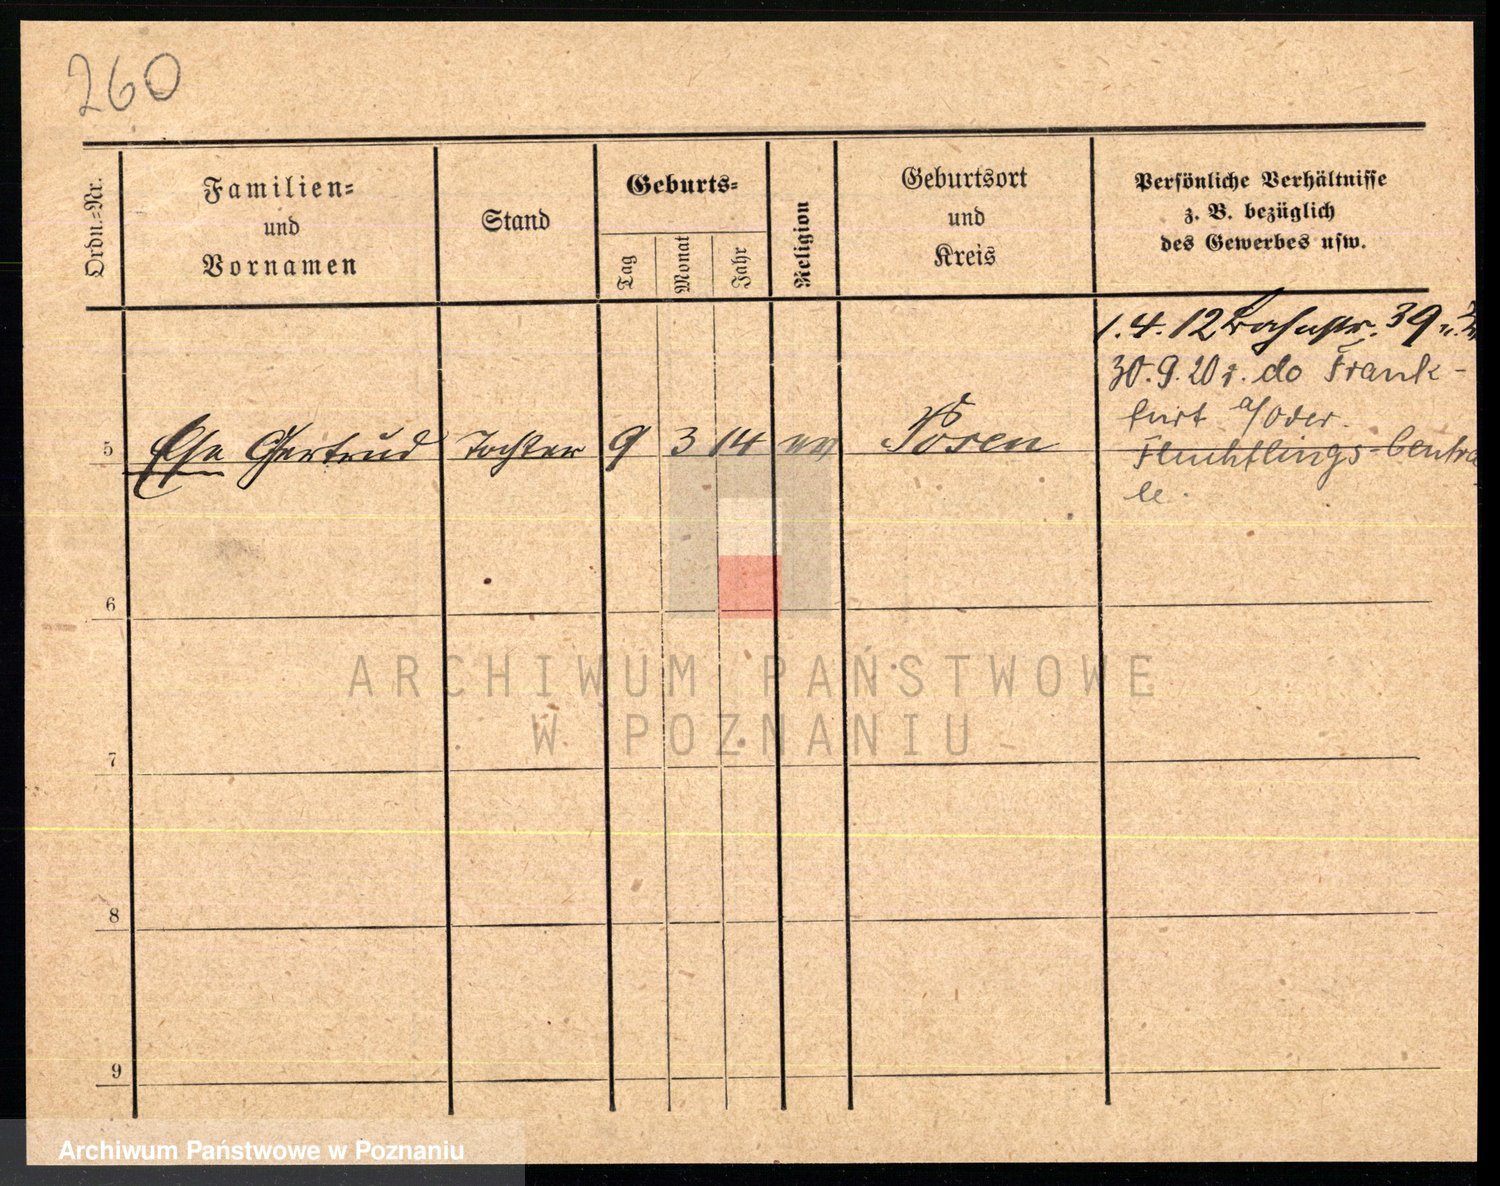 260
Ordn.=Nr.
Familien=
und
Vornamen
Stand
Geburts=
Tag
Monat
Jahr
Religion
Geburtsort
und
Kreis
Persönliche Verhältnisse
z. B. bezüglich
des Gewerbes usw.
1.4.12 39
30.9.20 do Frank-
furt a/Oder.
5 Gertrud Tochter 9 3 14 Posen
Fluchtlings-Centra
le.
6
7
8
9
ARCHIWUM PAŃSTWOWE
W POZNANIU
Archiwum Państwowe w Poznaniu